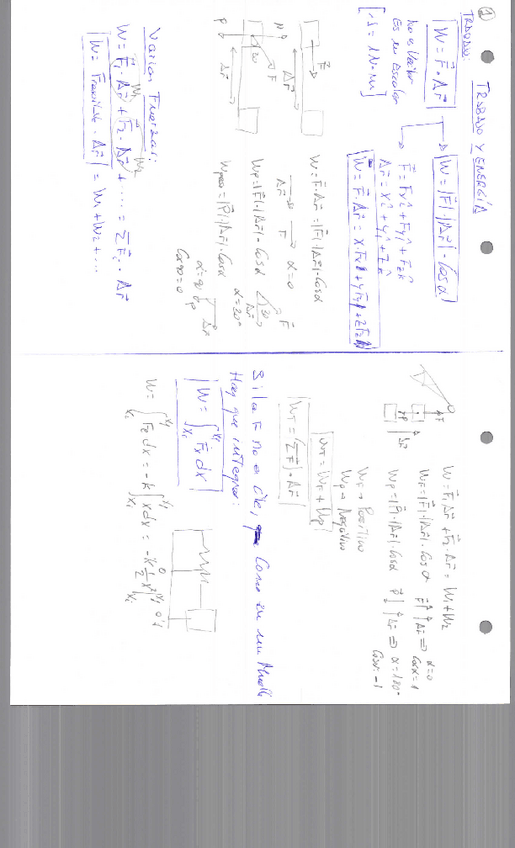 ①
TRABAJO Y ENERGÍA
TRABAJO:
W = F⃗ · Δr⃗ → W = |F⃗|·|Δr⃗| · Cos α
No es Vector
Es un Escalar
[1J = 1N·m]
F⃗ = Fx î + Fy ĵ + Fz k̂
Δr⃗ = x î + y ĵ + z k̂
W = F⃗ · Δr⃗ = x Fx + y Fy + z Fz
F⃗
Δr⃗
W = F⃗ · Δr⃗ = |F⃗|·|Δr⃗| · Cos α
Δr⃗ F⃗ α = 0
F
Δr⃗
P
W_F = |F⃗|·|Δr⃗| · Cos α
α = 20°
W_peso = |P⃗|·|Δr⃗| · Cos α
α = 90
Cos 90 = 0
Varias Fuerzas:
W₁ W₂
W = F⃗₁ · Δr⃗ + F⃗₂ · Δr⃗ + ···· = Σ F⃗ · Δr⃗
W = F⃗resultante · Δr⃗ = W₁ + W₂ + ...
W = F⃗₁ Δr⃗ + F⃗₂ · Δr⃗ = W₁ + W₂
W_F = |F⃗|·|Δr⃗| · Cos α F⃗ ↑ ↑ Δr⃗ ⇒ α = 0 Cos α = 1
W_P = |P⃗|·|Δr⃗| · Cos α P⃗ ↓ ↑ Δr⃗ ⇒ α = 180° Cos α = -1
W_F → Positivo
W_P → Negativo
W_T = W_F + W_P
W_T = (Σ F⃗) · Δr⃗
Si la F no es Cte, Como en un Muelle
Hay que integrar:
W = ∫ Fx dx
W = ∫ Fe dx = -k ∫ x dx = -k ½ x²